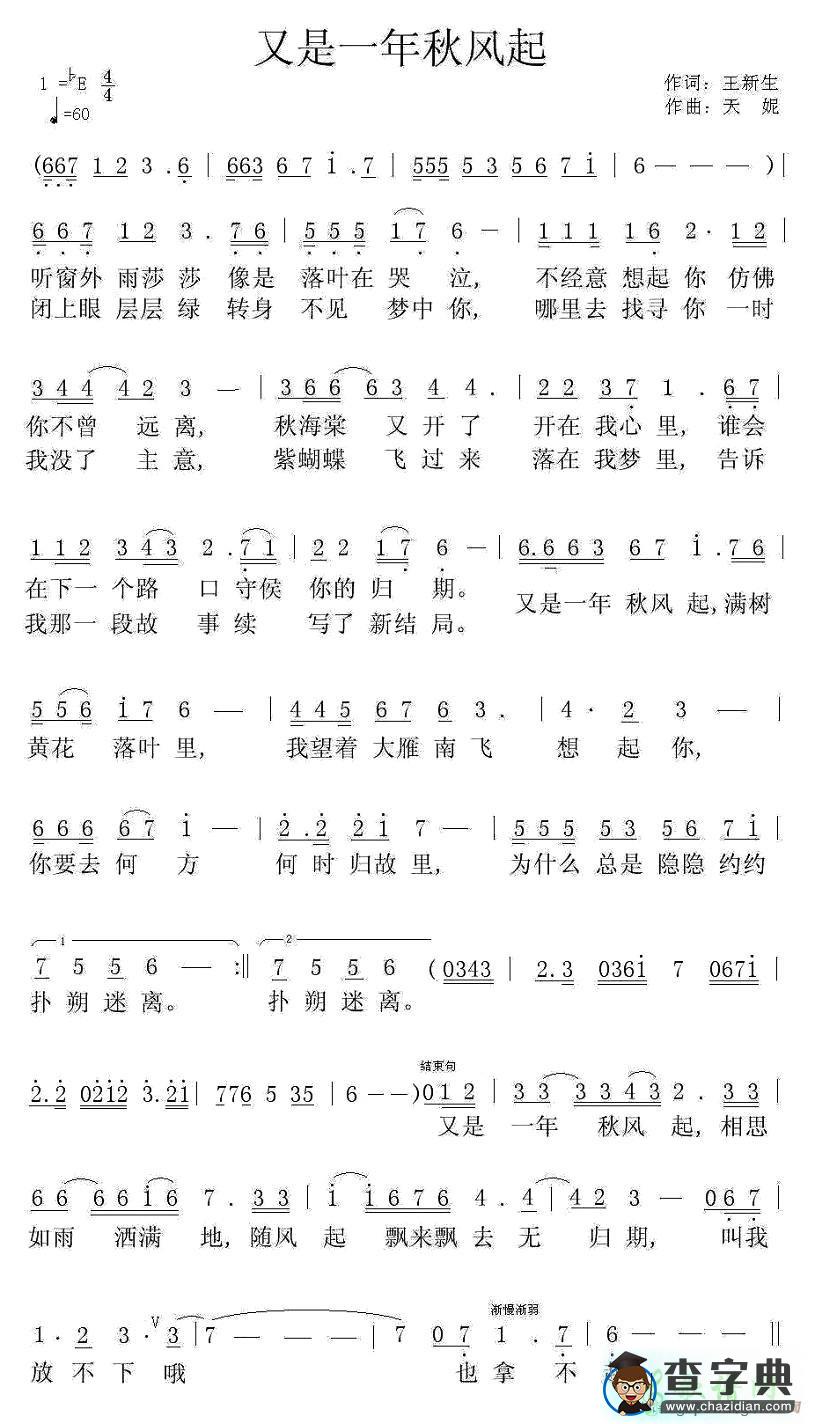 又是一年秋风起
1=♭E 4/4
作词：王新生
♩=60
作曲：天 妮
(667 1 2 3 .6 | 663 6 7 i .7 | 555 5 3 5 6 7 i | 6 — — — )|
6 6 7 1 2 3 . 7 6 | 5 5 5 1 7 6 — | 1 1 1 1 6 2· 1 2 |
听窗外 雨莎 莎 像是 落叶在 哭 泣, 不经意 想起 你 仿佛
闭上眼 层层 绿 转身 不见 梦中 你, 哪里去 找寻 你 一时
3 4 4 4 2 3 — | 3 6 6 6 3 4 4 . | 2 2 3 7 1 . 6 7 |
你不曾 远 离, 秋海棠 又 开 了 开在 我心 里, 谁会
我没了 主 意, 紫蝴蝶 飞 过 来 落在 我梦 里, 告诉
1 1 2 3 4 3 2 . 7 1 | 2 2 1 7 6 — | 6.6 6 3 6 7 i .7 6 |
在下一 个路 口 守侯 你的 归 期。
又是一年 秋风 起,满树
我那一 段故 事 续 写了 新结 局。
5 5 6 i 7 6 — | 4 4 5 6 7 6 3 . | 4 · 2 3 — |
黄花 落叶 里, 我望着 大雁 南 飞 想 起 你,
6 6 6 6 7 i — | 2 .2 2 i 7 — | 5 5 5 5 3 5 6 7 i |
你要去 何 方 何 时 归故 里, 为什么 总是 隐隐 约约
1 2
7 5 5 6 — :‖ 7 5 5 6 (0343 | 2.3 036i 7 067i |
扑 朔 迷 离。 扑 朔 迷 离。
结束句
2.2 02i2 3.2i | 776 5 35 | 6 - - )0 1 2 | 3 3 3 3 4 3 2 . 3 3 |
又是 一年 秋风 起, 相思
6 6 6 6 i 6 7 . 3 3 | i i 6 7 6 4 . 4 | 4 2 3 — 0 6 7 |
如雨 洒满 地, 随风 起 飘来飘 去 无 归 期, 叫我
渐慢渐弱
1 · 2 3 · V 3 | 7 — — — | 7 0 7 1 . 7 | 6 — — ‖
放 不 下 哦 也 拿 不
查字典
www.chazidian.com